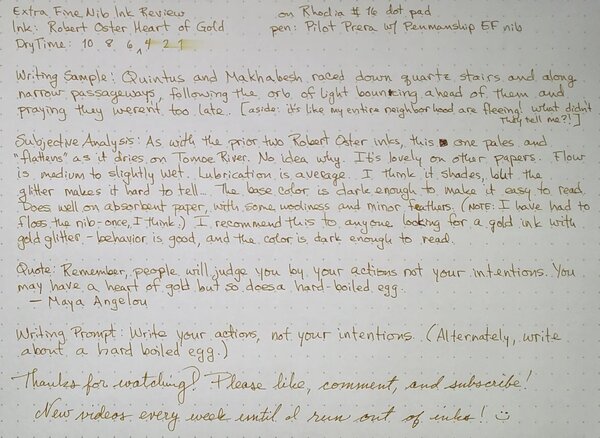 Extra Fine Nib Ink Review on Rhodia #16 dot pad
Ink: Robert Oster Heart of Gold pen: Pilot Prera w/ Penmanship EF nib
Dry Time: 10 8 6 4 2 1
Writing Sample: Quintus and Makhabesh raced down quartz stairs and along
narrow passageways, following the orb of light bouncing ahead of them and
praying they weren't too late. [aside: it's like my entire neighborhood are fleeing! What didn't
they tell me?!]
Subjective Analysis: As with the prior two Robert Oster inks, this one pales and
"flattens" as it dries on Tomoe River. No idea why. It's lovely on other papers. Flow
is medium to slightly wet. Lubrication is average. I think it shades, but the
glitter makes it hard to tell... The base color is dark enough to make it easy to read.
Does well on absorbent paper, with some wooliness and minor feathers. (NOTE: I have had to
floss the nib - once, I think.) I recommend this to anyone looking for a gold ink with
gold glitter - behavior is good, and the color is dark enough to read.
Quote: Remember, people will judge you by your actions not your intentions. You
may have a heart of gold but so does a hard-boiled egg.
— Maya Angelou
Writing Prompt: Write your actions, not your intentions. (Alternately, write
about a hard boiled egg.)
Thanks for watching! Please like, comment, and subscribe!
New videos every week until I run out of inks! :)